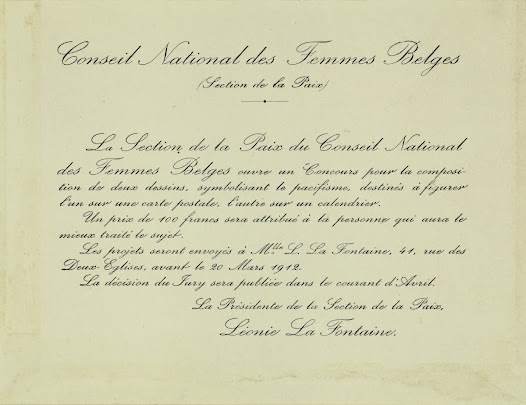 Conseil National des Femmes Belges
(Section de la Paix)
La Section de la Paix du Conseil National
des Femmes Belges ouvre un Concours pour la composi-
tion de deux dessins, symbolisant le pacifisme, destinés à figurer
l'un sur une carte postale, l'autre sur un calendrier.
Un prix de 100 francs sera attribué à la personne qui aura le
mieux traité le sujet.
Les projets seront envoyés à Mlle L. La Fontaine, 41, rue des
Deux-Eglises, avant le 20 Mars 1912.
La décision du Jury sera publiée dans le courant d'Avril.
La Présidente de la Section de la Paix,
Léonie La Fontaine.